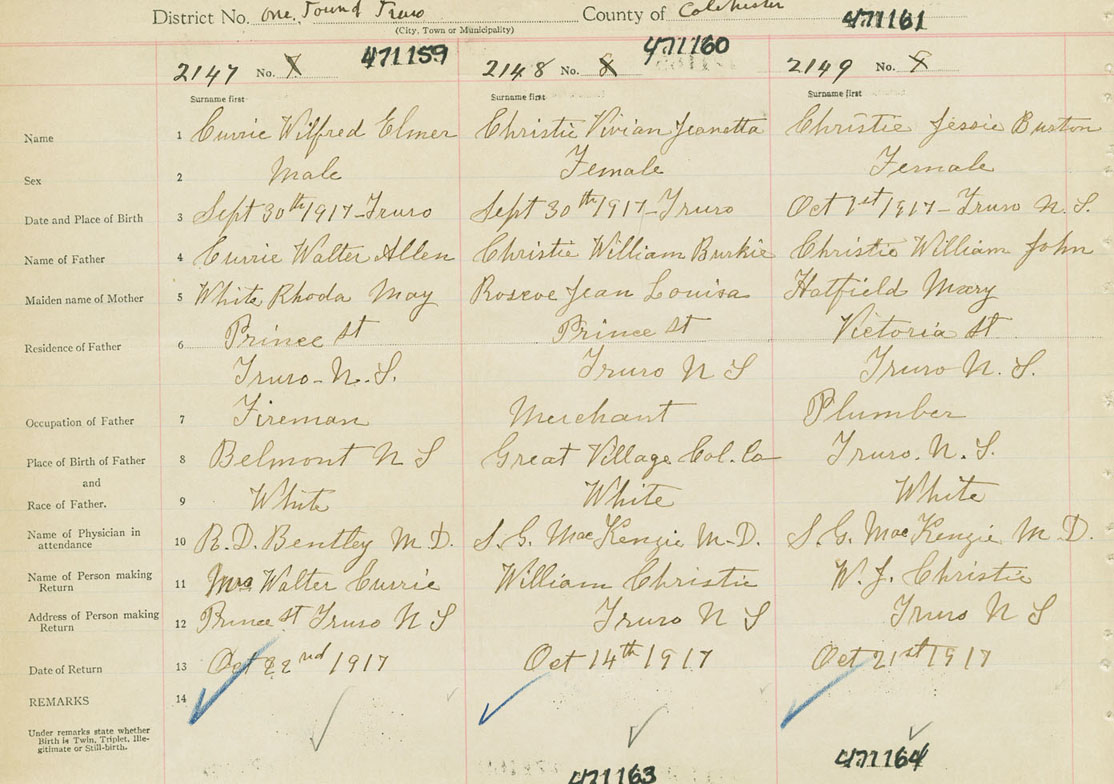 District No. One, Town of Truro County of Colchester 471161
(City, Town or Municipality)
2147 No. 7 471159 2148 No. 8 471160 2149 No. 9
Surname first Surname first Surname first
Name 1 Currie Wilfred Elmer Christie Vivian Jeanetta Christie Jessie Burton
Sex 2 Male Female Female
Date and Place of Birth 3 Sept 30th 1917-Truro Sept 30th 1917-Truro Oct 1st 1917-Truro N.S.
Name of Father 4 Currie Walter Allen Christie William Burkie Christie William John
Maiden name of Mother 5 White Rhoda May Roscoe Jean Louisa Hatfield Mary
Residence of Father 6 Prince St Prince St Victoria St
Truro-N.S. Truro N S Truro N.S.
Occupation of Father 7 Fireman Merchant Plumber
Place of Birth of Father 8 Belmont N S Great Village Col. Co Truro. N.S.
and
Race of Father. 9 White White White
Name of Physician in attendance 10 R.D. Bentley M.D. S.G. MacKenzie M.D. S.G. MacKenzie M.D.
Name of Person making Return 11 Mrs Walter Currie William Christie W.J. Christie
Address of Person making Return 12 Prince St Truro N S Truro N S Truro N S
Date of Return 13 Oct 22nd 1917 Oct 14th 1917 Oct 21st 1917
REMARKS 14
Under remarks state whether
Birth is Twin, Triplet, Ille-
gitimate or Still-birth.
471163 471164